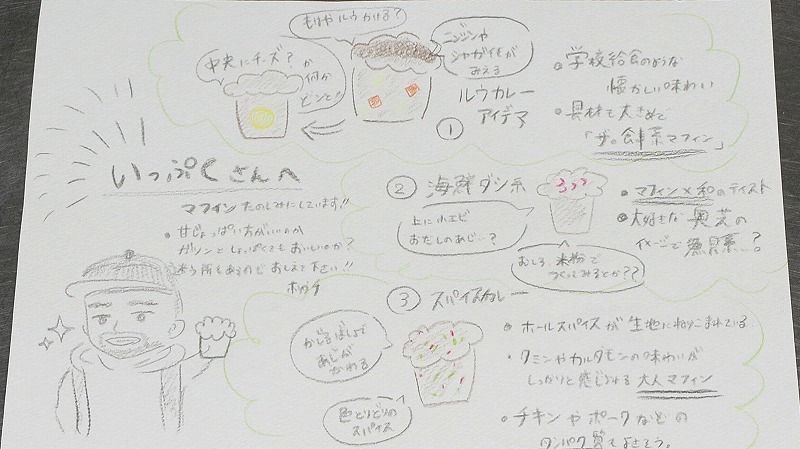 もはやルウかける?
中央にチーズ?か
何か
どーん!!
ニンジンや
ジャガイモが
みえる
ルウカレー
アイデア
①
学校給食のような
懐かしい味わい
具材も大きめで
「ザ・食事系マフィン」
いっぷくさんへ
マフィンたのしみにしています!!
甘じょっぱい方がいいのか
ガツンとしょっぱくてもおいしいのか?
所もあるので おしえて下さい!!
② 海鮮ダシ系
上に小エビ
おだしのあじ…?
むしろ、米粉で
つくってみるとか??
マフィン×和のテイスト
大好きな奥芝の
イメージで 漁?
③ スパイスカレー
かじるばしょで
あじが
かわる
色とりどりの
スパイス
ホールスパイスが生地にねりこまれている
クミンやカルダモンの味わいが
しっかりと感じられる 大人マフィン
チキンやポークなどの
タンパク質でもよさそう。